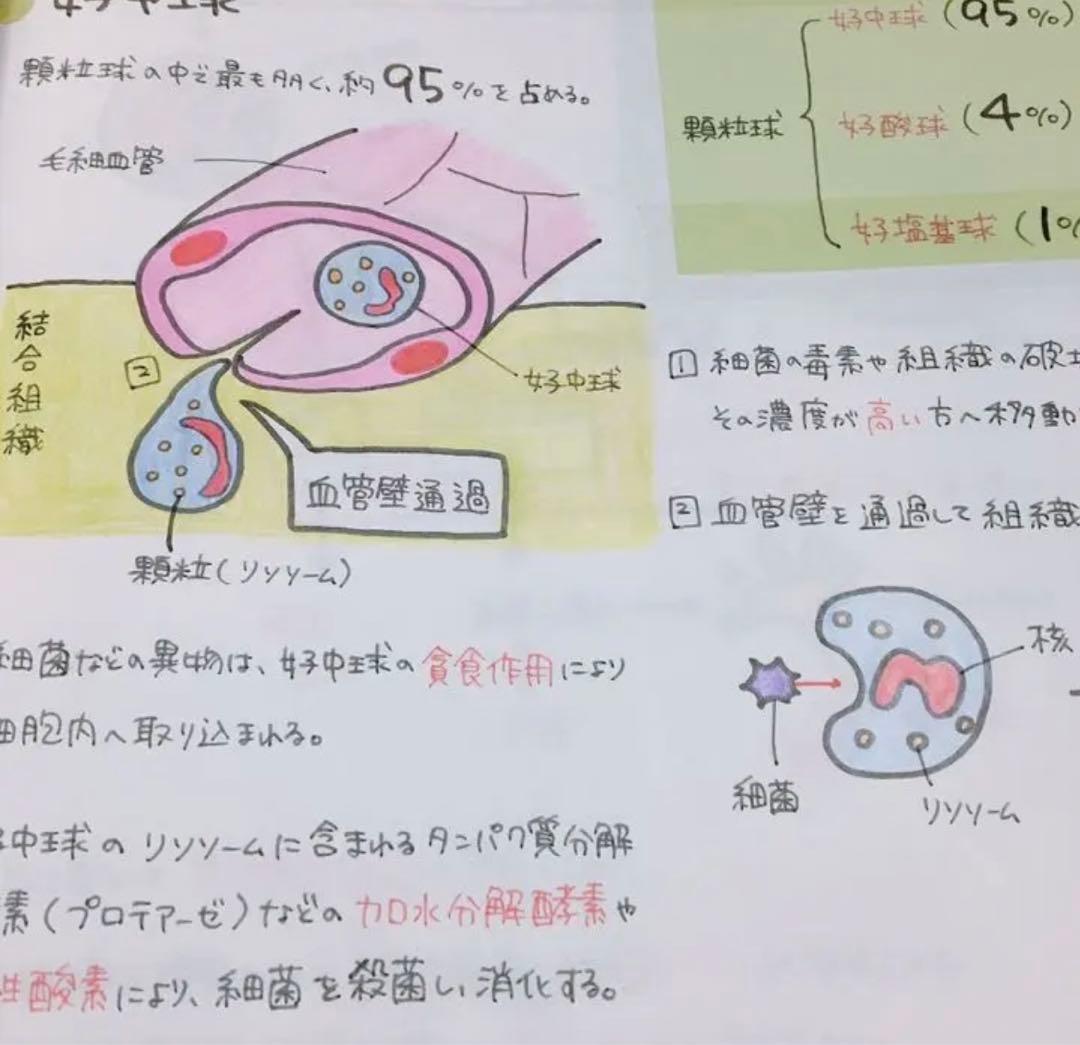 好中球
顆粒球の中で最も多く、約95%を占める。
毛細血管
結合組織
2
好中球
血管壁通過
顆粒(リソソーム)
細菌などの異物は、好中球の貪食作用により
細胞内へ取り込まれる。
中球のリソソームに含まれるタンパク質分解
素(プロテアーゼ)などの加水分解酵素や
性酸素により、細菌を殺菌し、消化する。
顆粒球
好中球(95%)
好酸球(4%)
好塩基球(1%
1 細菌の毒素や組織の破
その濃度が高い方へ移動
2 血管壁を通過して組織
核
細菌
リソソーム